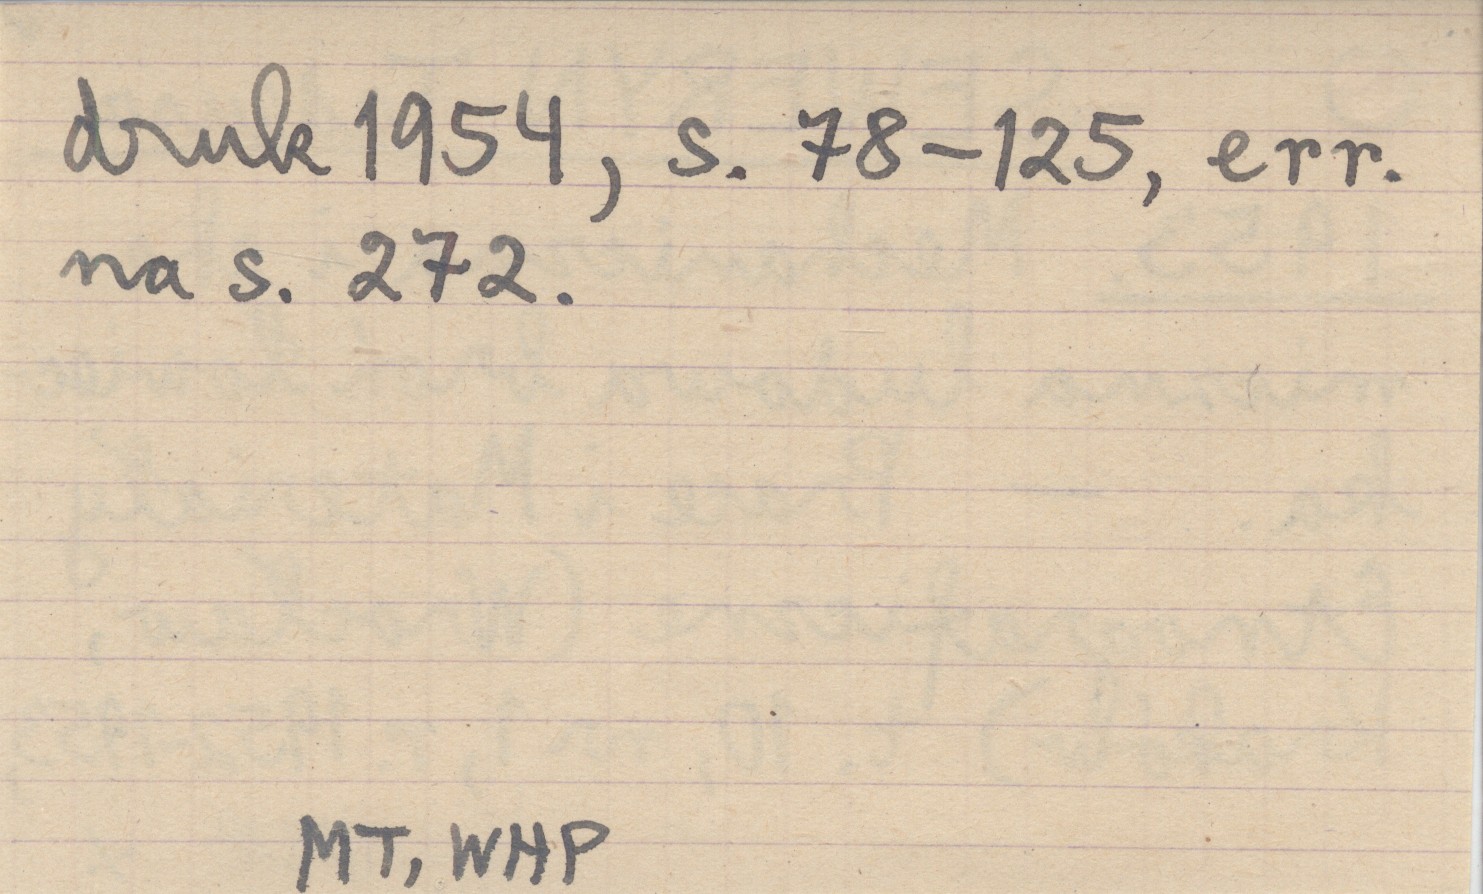 druk 1954, s. 78-125, err.
na s. 272.
MT, WHP